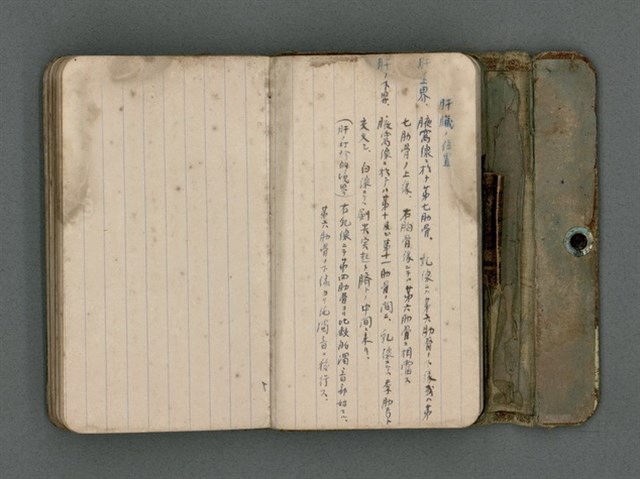 肝臓ノ位置
肝ノ上界、腋窩線ニ於テ第七肋骨、乳線ニテ第六肋骨ノ上縁或ハ第
七肋骨ノ上縁、右胸骨縁ニテハ第六肋骨ニ相当ス
肝ノ下界、腋窩線ニ於テハ第十 第十一肋骨ノ間ニ、乳線ニテハ 肋骨ト
交叉シ、白線ニテハ剣状突起ト臍トノ中間ニ来リ、
(肝 打診的境界) 右乳線ニテ第四肋骨ヨリ比較的濁音部始マリ、
第六肋骨ノ下縁ヨリ 濁音ニ移行ス、